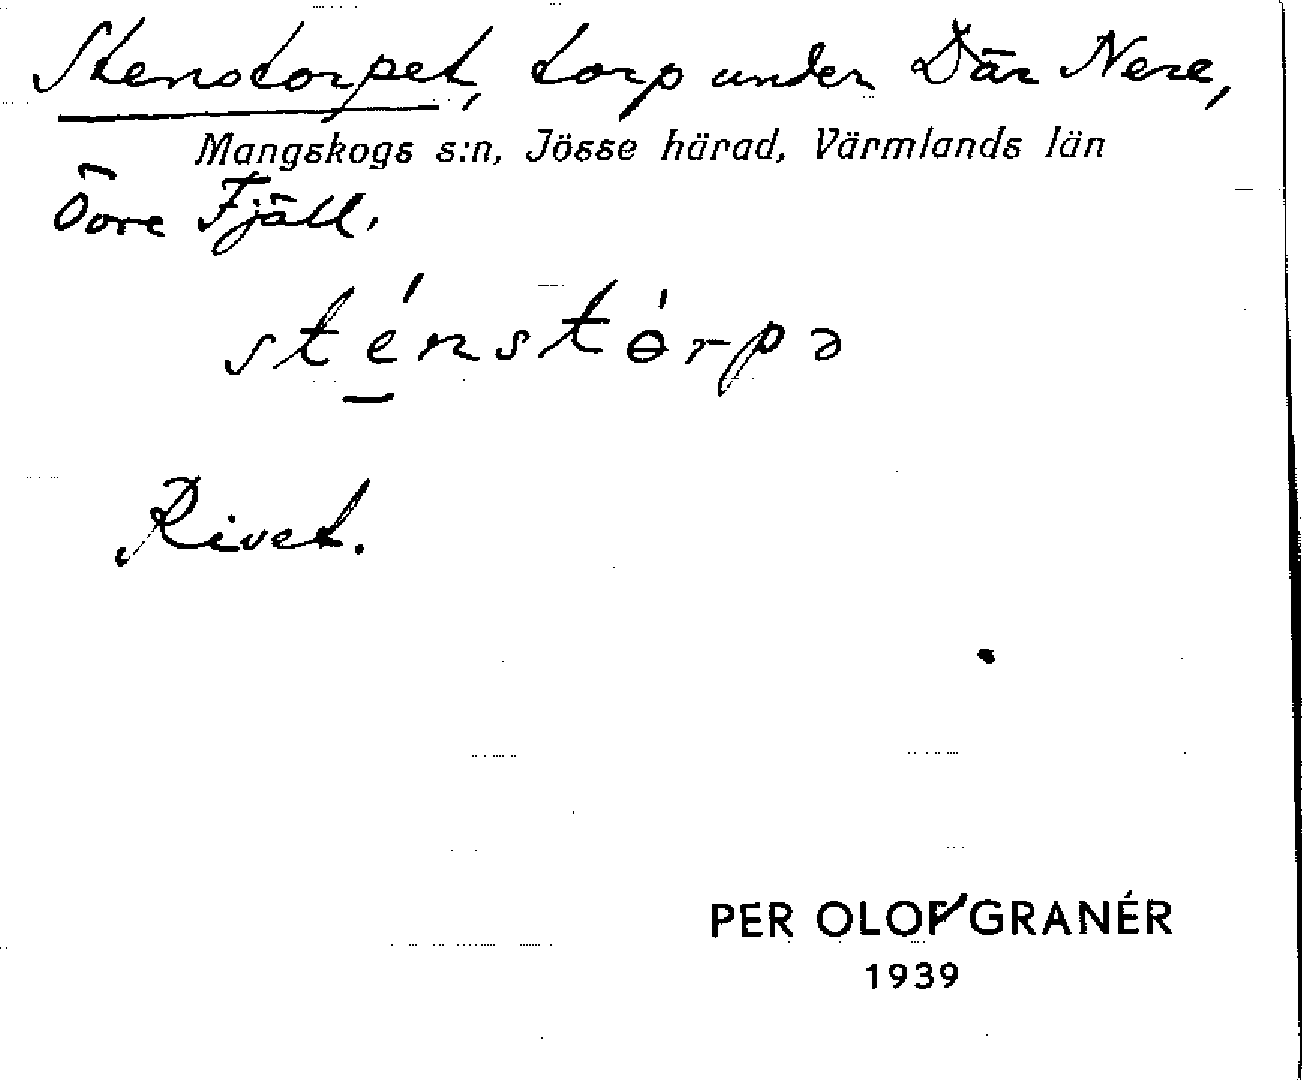 Stenstorpet, torp under Där Nere,
Mangskogs s:n, Jösse härad, Värmlands län
Övre Fjäll.
sténstɵ́rpə
Rivet.
PER OLOF GRANÉR
1939